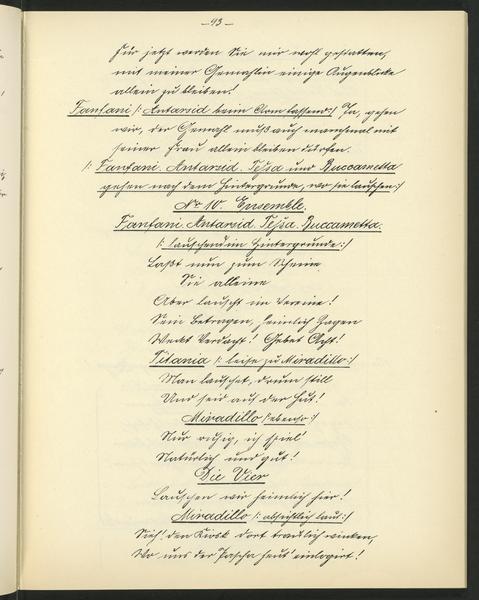 — 43 —
Für jetzt werden Sie mir wohl gestatten,
mit meiner Gemahlin einige Augenblicke
allein zu bleiben!
Fanfani /: Antarsid beim Arm fassend :/ Ja, gehen
wir, der Gemahl muß auch manchmal mit
seiner Frau allein bleiben dürfen.
/: Fanfani. Antarsid. Tessa und Buccametta
gehen nach dem Hintergrunde, wo sie lauschen :/
No 10. Ensemble.
Fanfani. Antarsid. Tessa. Buccametta.
/: lauschend im Hintergrunde :/
Laßt nun zum Schein
Sie alleine
Aber lauscht im Vereine!
Sein Betragen, heimlich Zagen
Weckt Verdacht! Gebet Acht!
Titania /: leise zu Miradillo :/
Man lauschet, drum still
Und sei auf der Hut!
Miradillo /: ebenso :/
Nur ruhig, ich spiel'
Natürlich und gut!
Die Vier
Lauschen wir heimlich hier!
Miradillo /: absichtlich laut :/
Sieh! den Kiosk dort traulich winken,
Wo uns der Pascha heut' einlogirt!